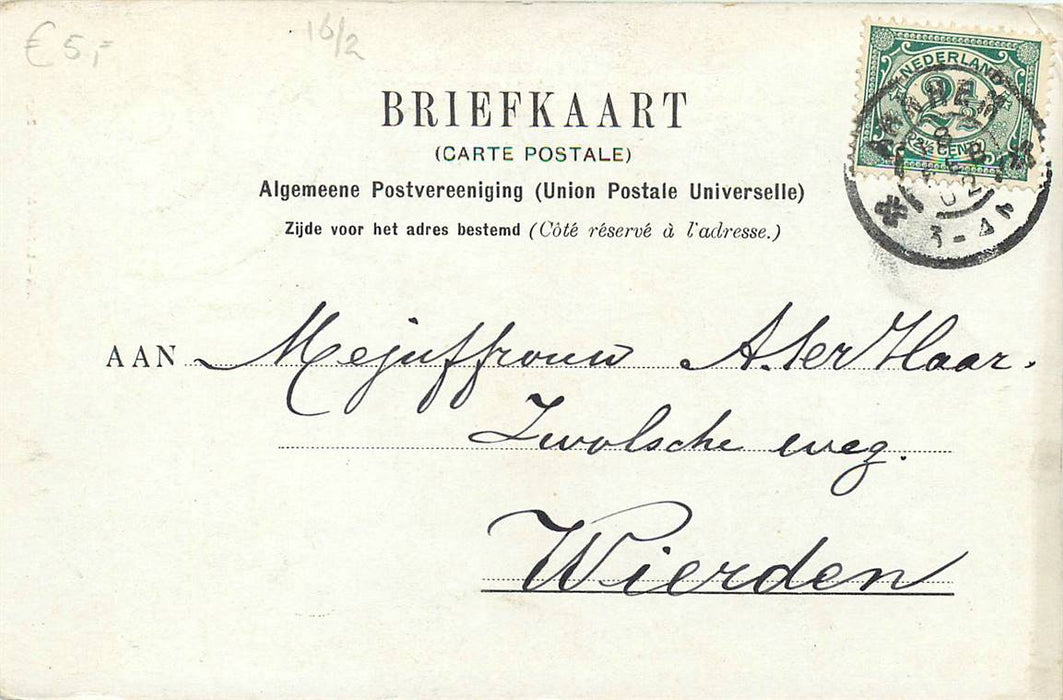 € 5,-
16/2
NEDERLAND
2½
2½ CENT
3-4N
BRIEFKAART
(CARTE POSTALE)
Algemeene Postvereeniging (Union Postale Universelle)
Zijde voor het adres bestemd (Côté réservé à l'adresse.)
AAN Mejuffrouw A. ter Haar.
Zwolsche weg.
Wierden